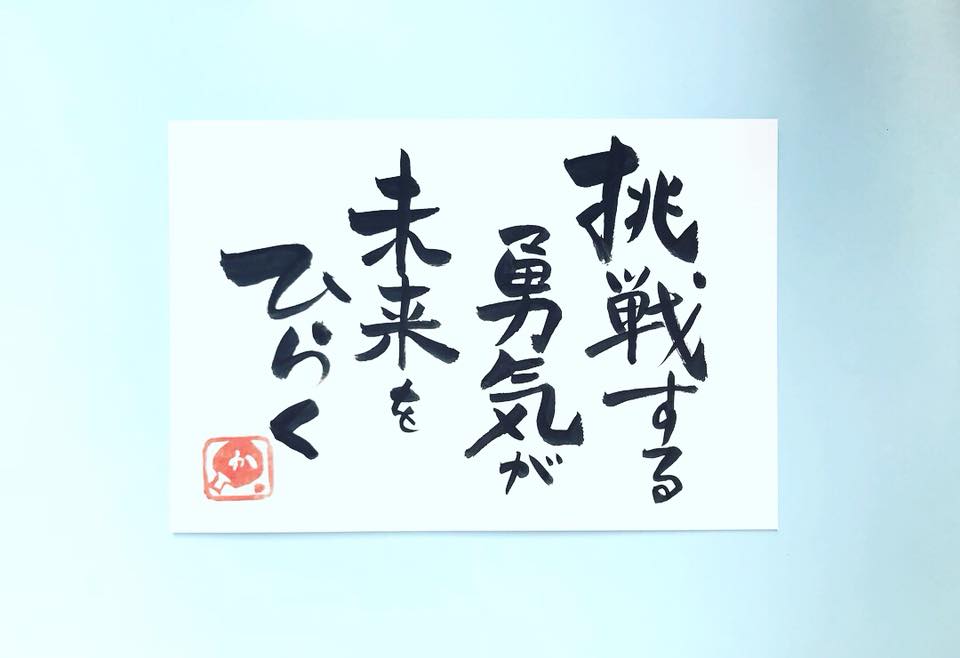 挑戦する
勇気が
未来を
ひらく
か